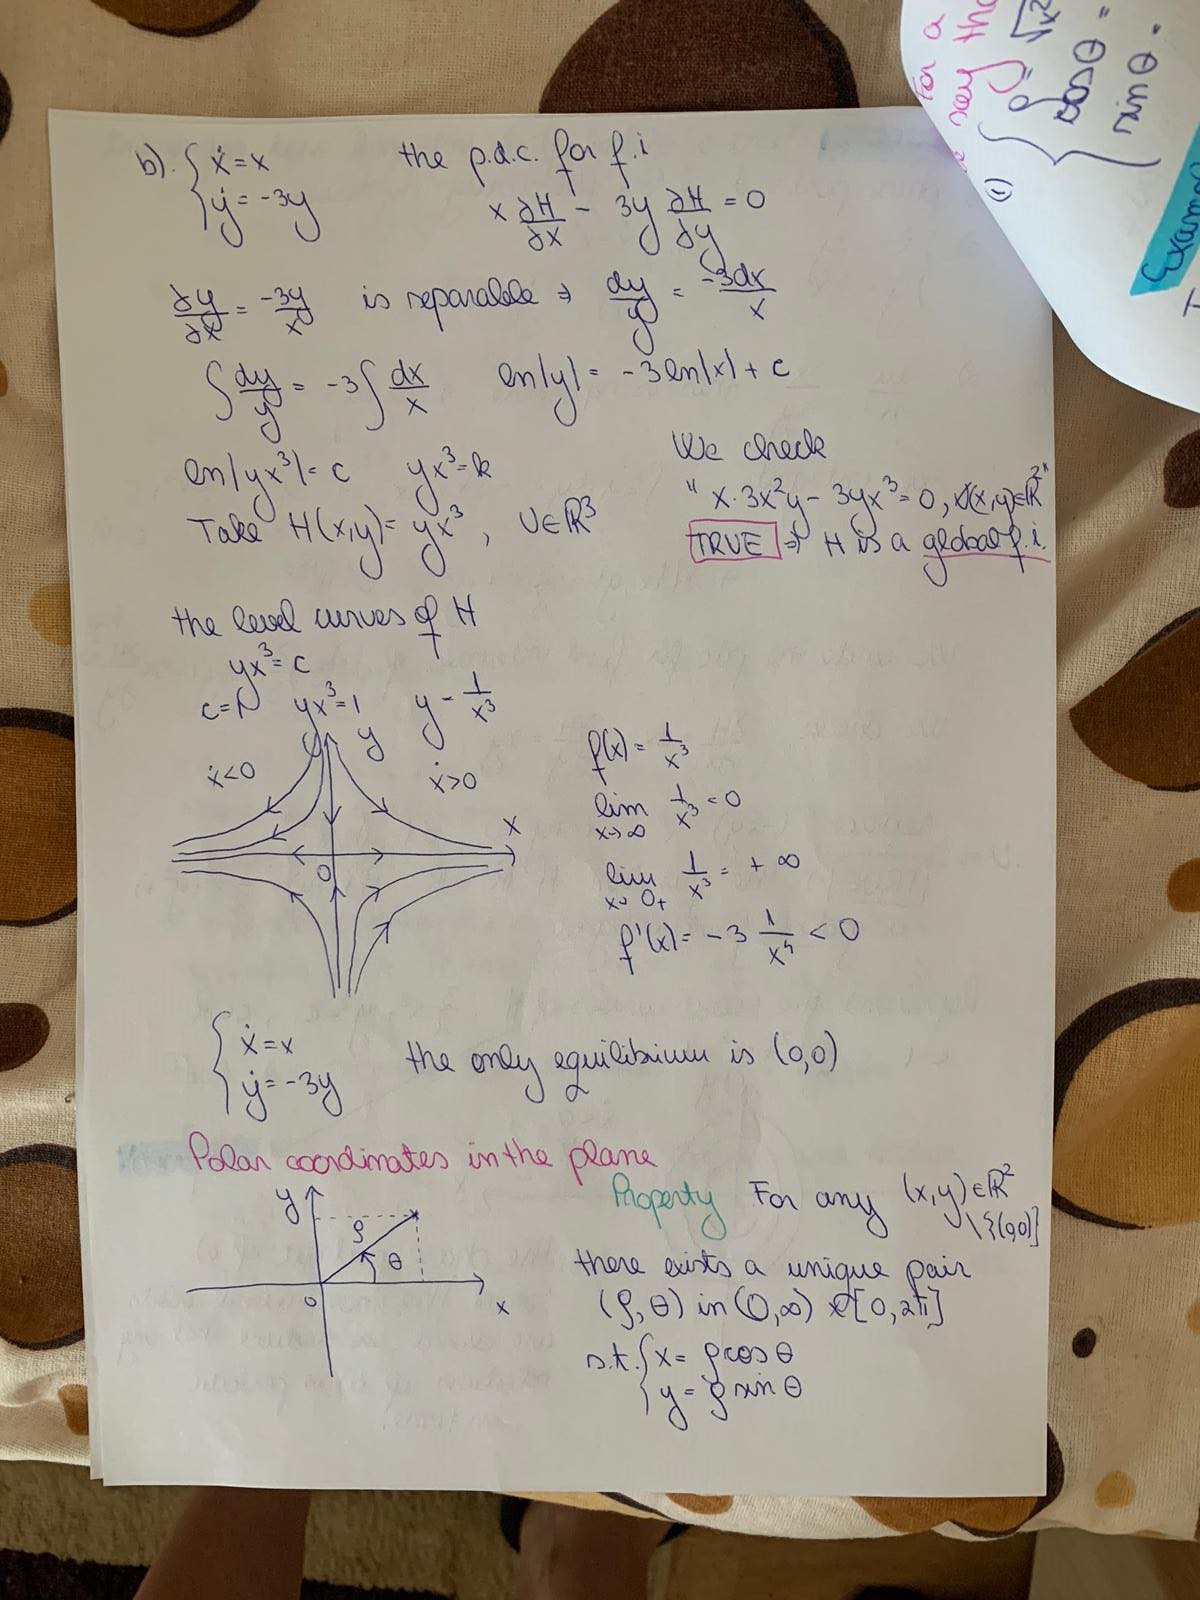 b). { ẋ = x
ẏ = -3y
the p.d.c. for f.i
x ∂H/∂x - 3y ∂H/∂y = 0
∂y/∂x = -3y/x is separable ⇒ dy/y = -3dx/x
∫ dy/y = -3 ∫ dx/x ln|y| = -3 ln|x| + c
ln|yx³| = c yx³ = k
Take H(x,y) = yx³, U∈ℝ³
We check
" x·3x²y - 3yx³ = 0, ∀(x,y)∈ℝ² "
TRUE ⇒ H is a global f.i.
the level curves of H
yx³ = c
c=1 yx³=1 y = 1/x³
y
ẋ<0 ẋ>0
x
0
f(x) = 1/x³
lim x→∞ 1/x³ = 0
lim x→0+ 1/x³ = +∞
f'(x) = -3 1/x⁴ < 0
{ ẋ = x
ẏ = -3y
the only equilibrium is (0,0)
Polar coordinates in the plane
y
ρ
θ
0
x
Property For any (x,y)∈ℝ²
\{(0,0)}
there exists a unique pair
(ρ, θ) in (0,∞) × [0,2π]
s.t. { x = ρcos θ
y = ρ sin θ
For a
say
(1) {
√x²
cosθ =
sinθ =
Exam